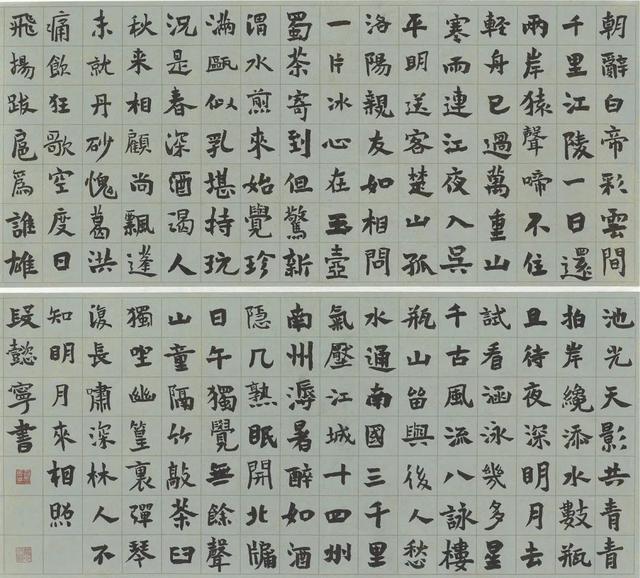 朝辭白帝彩雲間
千里江陵一日還
兩岸猿聲啼不住
輕舟已過萬重山
寒雨連江夜入吳
平明送客楚山孤
洛陽親友如相問
一片冰心在玉壺
蜀茶寄到但驚新
渭水煎來始覺珍
滿甌似乳堪持玩
況是春深酒渴人
秋来相顧尚飄蓬
未就丹砂愧葛洪
痛飲狂歌空度日
飛揚跋扈為誰雄
池光天影共青青
拍岸纔添水數瓶
且待夜深明月去
試看涵泳幾多星
千古風流八詠樓
瓶山留與後人愁
水通南國三千里
氣壓江城十四州
南州溽暑醉如酒
隱几熟眠開北牖
日午獨覺無餘聲
山童隔竹敲茶臼
獨坐幽篁裏彈琴
復長嘯深林人不
知明月來相照
段懿寧書